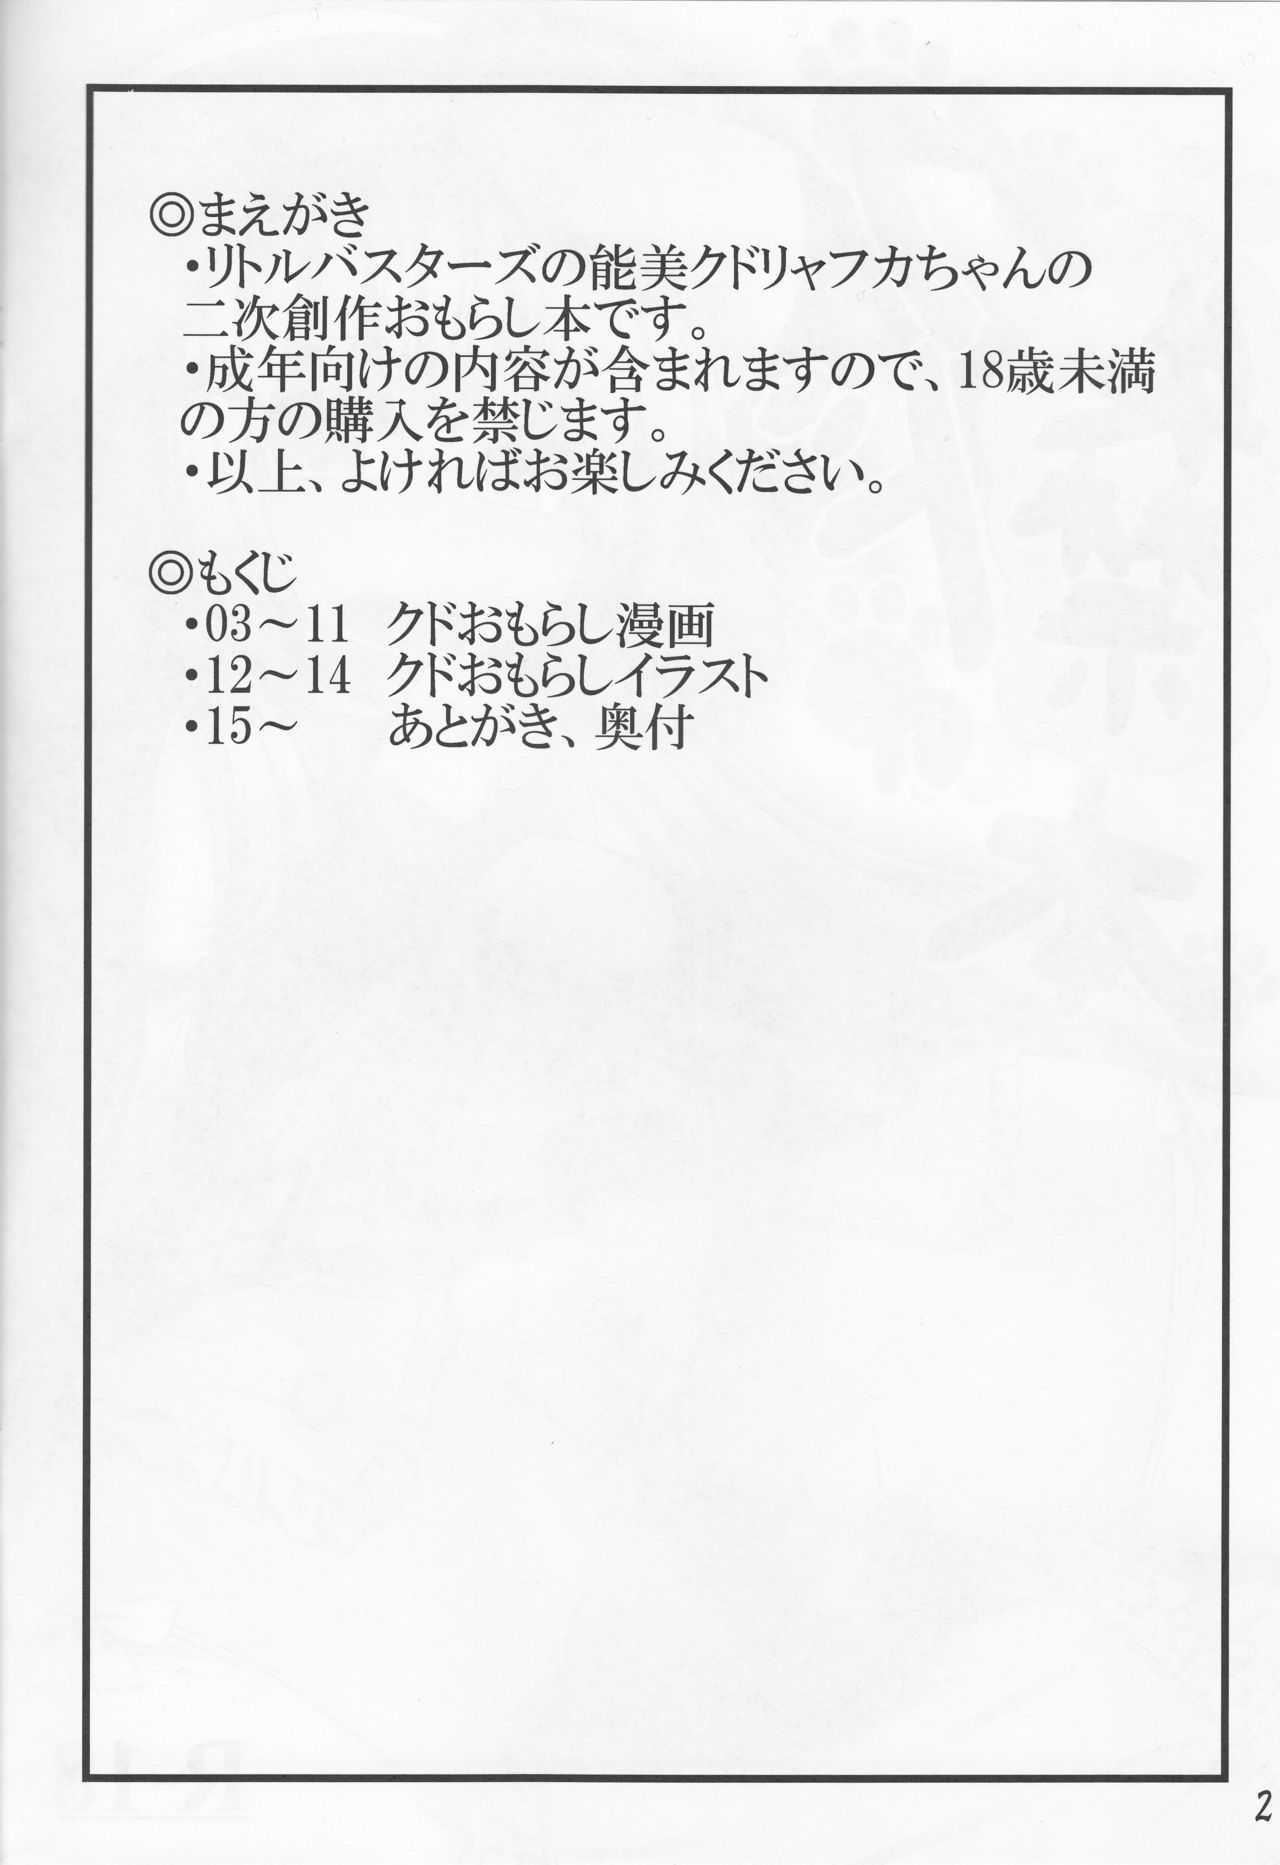 ◎まえがき
・リトルバスターズの能美クドリャフカちゃんの
二次創作おもらし本です。
・成年向けの内容が含まれますので、18歳未満
の方の購入を禁じます。
・以上、よければお楽しみください。
◎もくじ
・03～11 クドおもらし漫画
・12～14 クドおもらしイラスト
・15～ あとがき、奥付
2